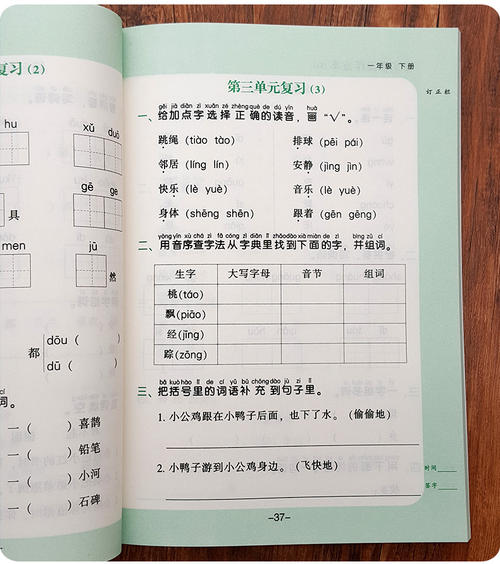 复习（2）
hu
xǔ duō
gē ge
具
men
jū
然
都
dōu（ ）
dū（ ）
词。
一（ ）喜鹊
一（ ）铅笔
一（ ）小河
一（ ）石碑
一年级 下册
第三单元复习（3）
订正栏
gěi jiā diǎn zì xuǎn zé zhèng què de dú yīn huà
一、给加点字选择正确的读音，画“√”。
跳绳（tiào tào） 排球（pēi pái）
邻居（líng lín） 安静（jìng jìn）
快乐（lè yuè） 音乐（lè yuè）
身体（shēng shēn） 跟着（gēn gēng）
yòng yīn xù chá zì fǎ cóng zì diǎn lǐ zhǎo dào xià miàn de zì bìng zǔ cí
二、用音序查字法从字典里找到下面的字，并组词。
生字 大写字母 音节 组词
桃（táo）
飘（piāo）
经（jīng）
踪（zōng）
bǎ kuò hào lǐ de cí yǔ bǔ chōng dào jù zi lǐ
三、把括号里的词语补充到句子里。
1. 小公鸡跟在小鸭子后面，也下了水。（偷偷地）
2. 小鸭子游到小公鸡身边。（飞快地）
时间
签字
-37-